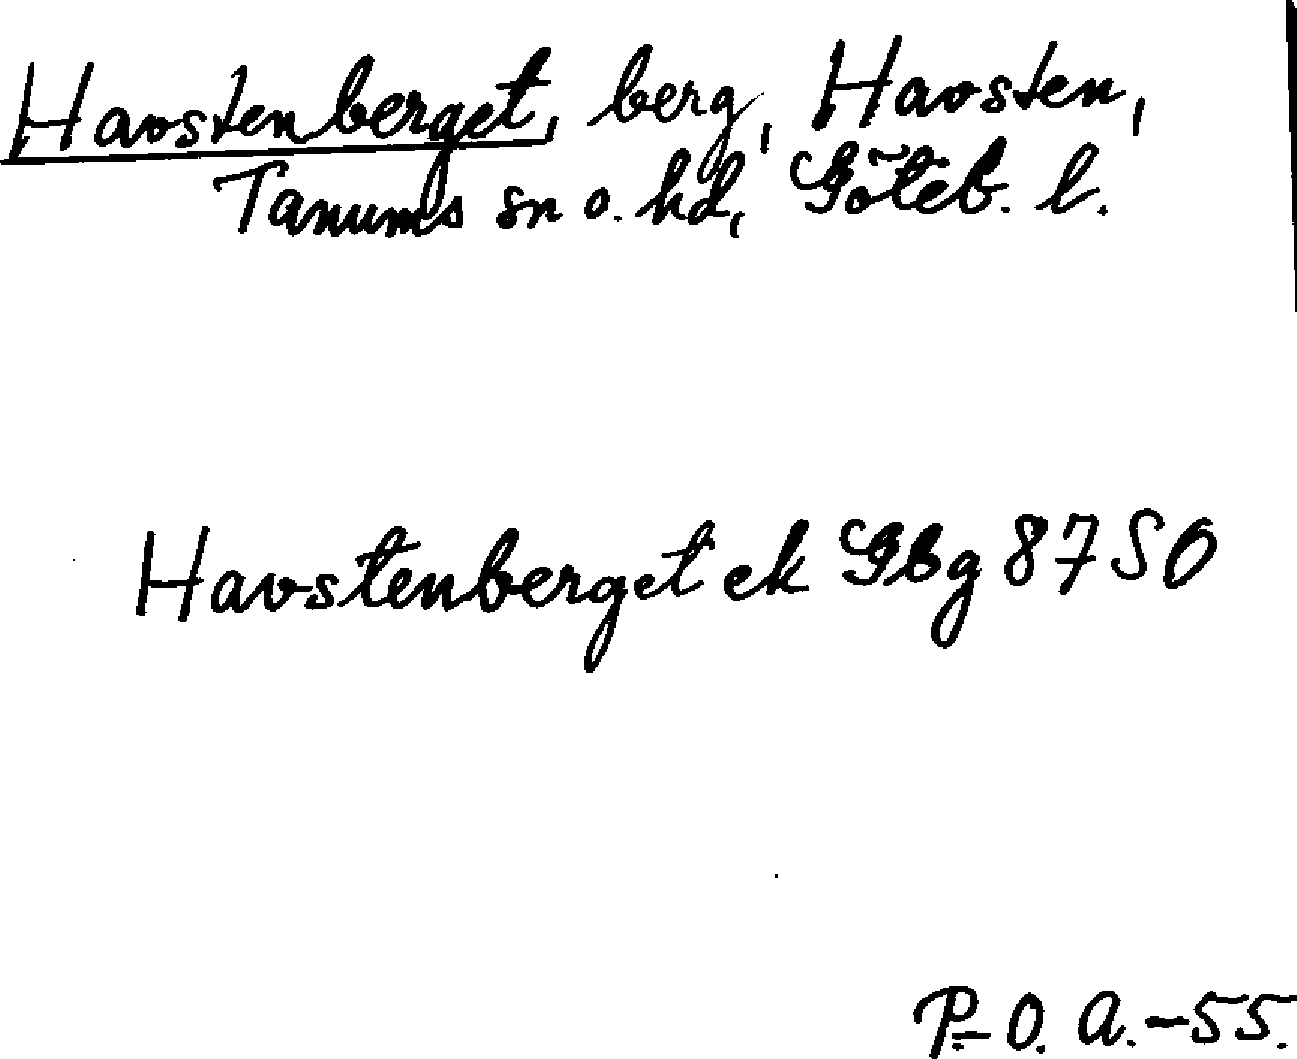 Havstenberget, berg, Havsten,
Tanums sn o. hd, Göteb. l.
Havstenberget ek Gbg 87 SO
P.-O. A. -55.